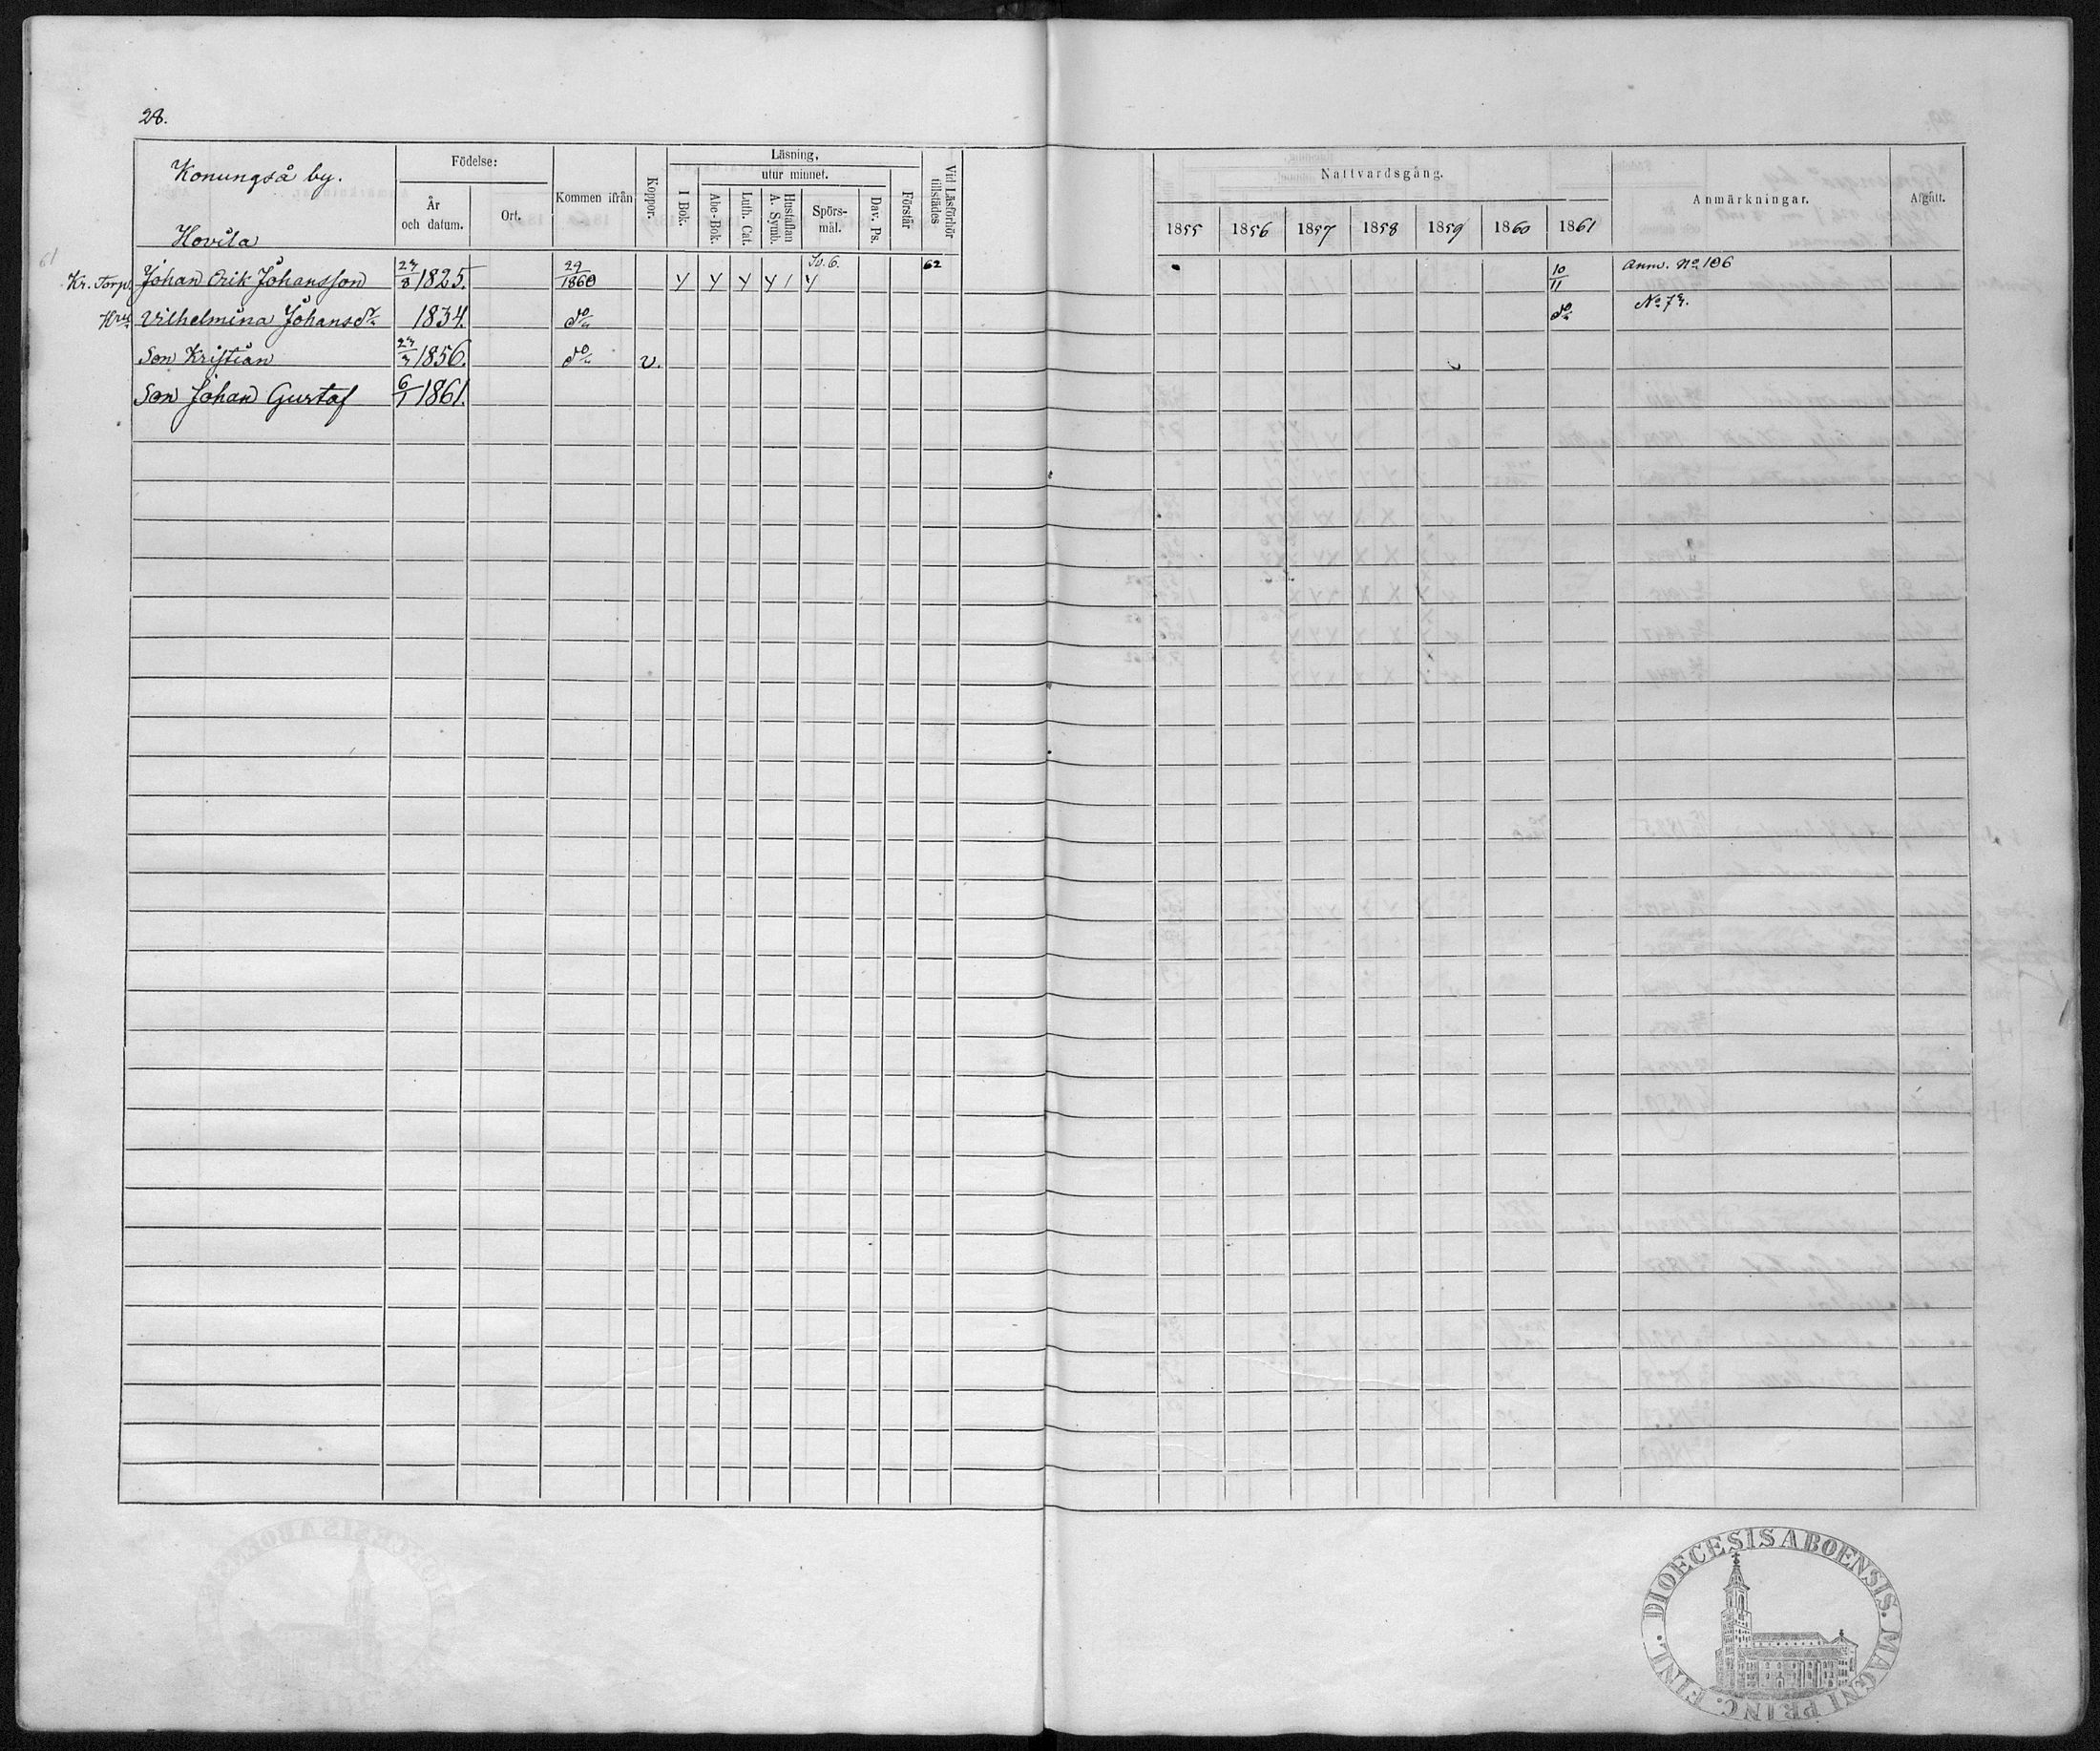 28.
Konungså by.
Hovila
Födelse:
År och datum.
Ort.
Kommen ifrån
Koppor.
Läsning,
utur minnet.
I Bok.
Abc-Bok.
Luth. Cat.
Hustaflan A. Symb.
Spörs-mål.
Dav. Ps.
Förstår
Vid Läsförhör tillstädes
Nattvardsgång.
1855 1856 1857 1858 1859 1860 1861
Anmärkningar.
Afgått.
61
Sv. 6.
Kr. Torp. Johan Erik Johansson 27/8 1825. 29/1860 62 10/11 Anm. No 106
Hru Vilhelmina Johansdr 1834. do do No 73.
Son Kristian 27/3 1856. do v.
Son Johan Gustaf 6/1 1861.
DIOECESIS ABOENSIS. MAGNI PRINC. FINL.